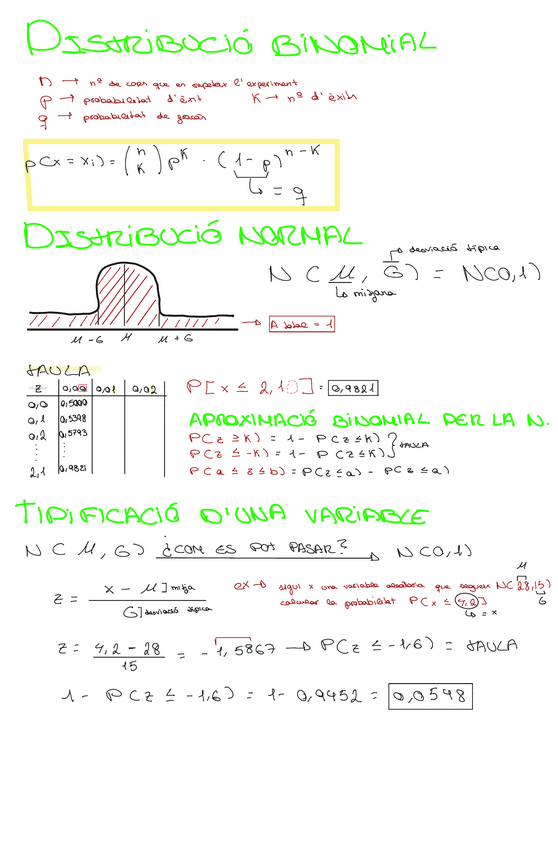 DISTRIBUCIÓ BINOMIAL
n → nº de cops que es repeteix l'experiment
p → probabilitat d'èxit K → nº d'èxits
q → probabilitat de fracàs
p(x = xi) = (n K) p^K · (1 - p)^n-K
↳ = q
DISTRIBUCIÓ NORMAL
desviació típica
N(μ, σ) = N(0,1)
↳ mitjana
μ-σ μ μ+σ → A total = 1
TAULA
z 0,00 0,01 0,02
0,0 0,5000
0,1 0,5398
0,2 0,5793
2,1 0,9821
P[x ≤ 2,10] = 0,9821
APROXIMACIÓ BINOMIAL PER LA N.
P(z ≥ K) = 1 - P(z ≤ K)
P(z ≤ -K) = 1 - P(z ≤ K) } TAULA
P(a ≤ z ≤ b) = P(z ≤ a) - P(z ≤ a)
TIPIFICACIÓ D'UNA VARIABLE
N(μ, σ) ¿COM ES POT PASAR? → N(0,1)
z = x - μ] mitja
σ] desviació típica
ex → sigui x una variable aleatoria que segueix N(28,15)
μ
σ
calcular la probabilitat P(x ≤ 4,2]
↳ = x
z = 4,2 - 28 / 15 = -1,5867 → P(z ≤ -1,6) = TAULA
1 - P(z ≤ -1,6) = 1 - 0,9452 = 0,0548